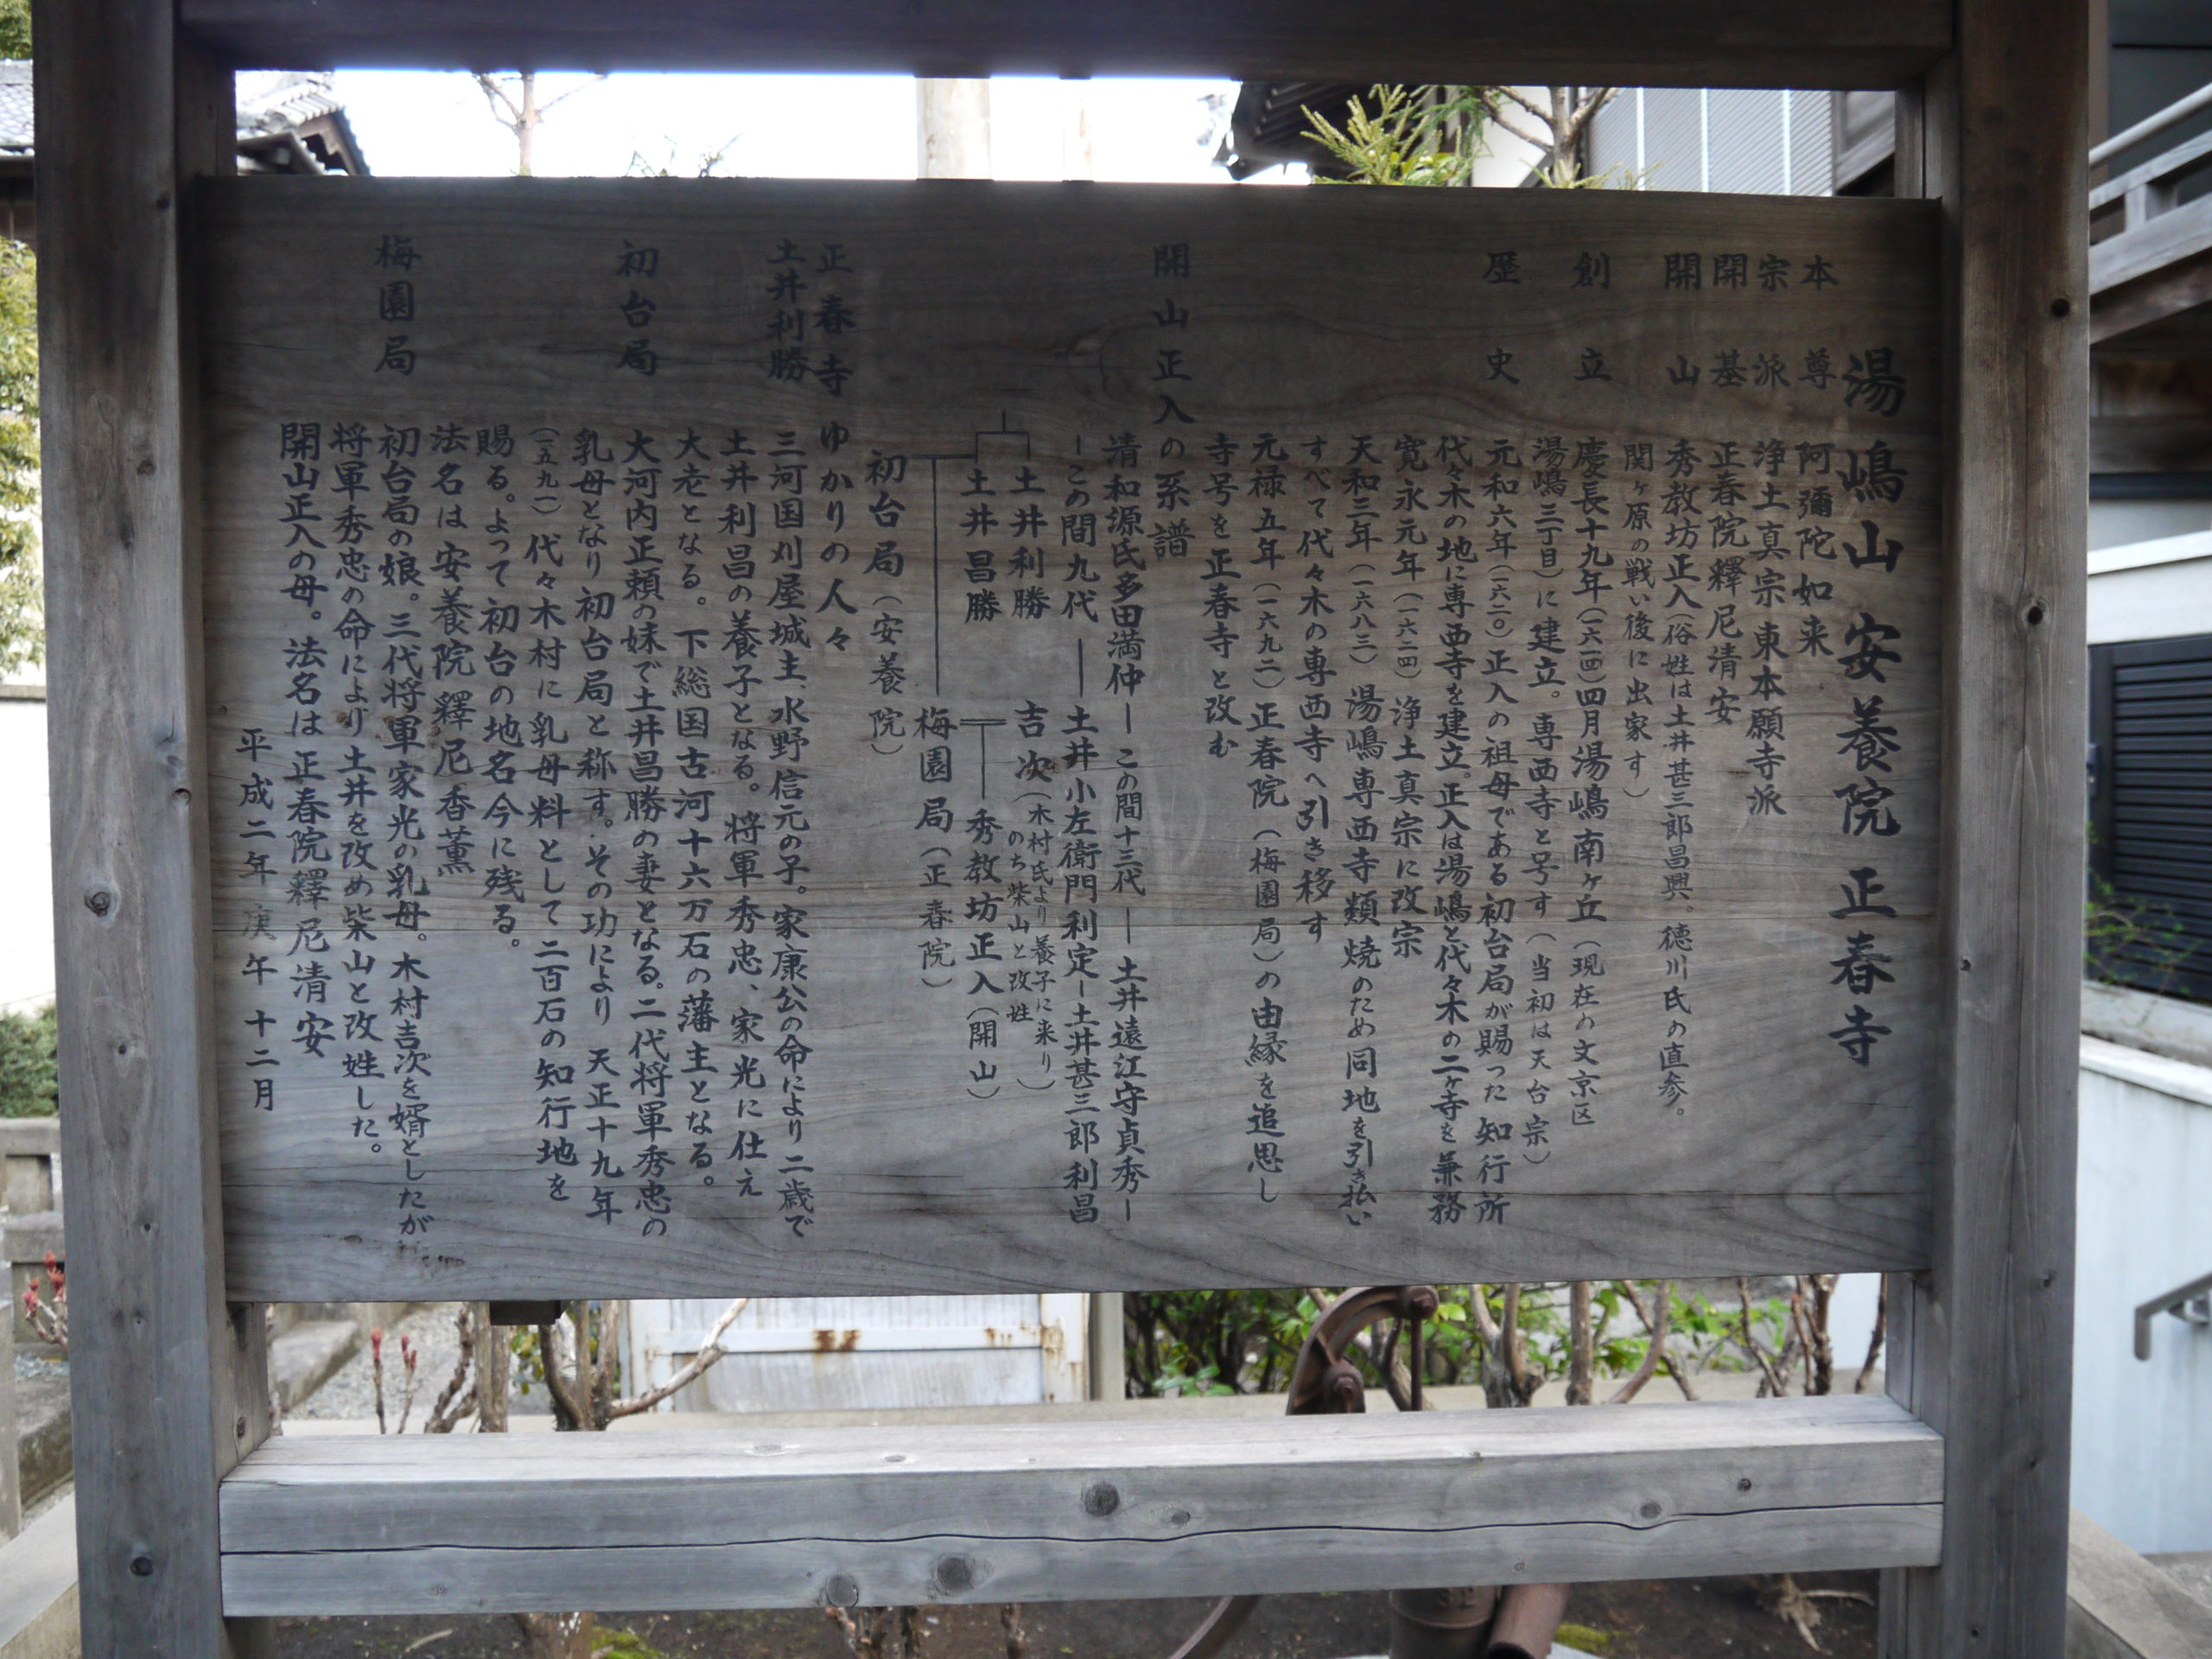 湯嶋山 安養院 正春寺
本尊 阿彌陀如来
宗派 浄土真宗東本願寺派
開基 正春院釋尼清安
開山 秀教坊正入(俗姓は土井甚三郎昌興。徳川氏の直参。
関ヶ原の戦い後に出家す)
創立 慶長十九年(一六一四)四月湯嶋南ヶ丘(現在の文京区
湯嶋三丁目)に建立。専西寺と号す(当初は天台宗)
歴史 元和六年(一六二〇)正入の祖母である初台局が賜った知行所
代々木の地に専西寺を建立。正入は湯嶋と代々木の二ヶ寺を兼務
寛永元年(一六二四)浄土真宗に改宗
天和三年(一六八三)湯嶋専西寺類焼のため同地を引き払い
すべて代々木の専西寺へ引き移す
元禄五年(一六九二)正春院(梅園局)の由縁を追思し
寺号を正春寺と改む
開山正入の系譜
清和源氏多田満仲ーこの間十三代ー土井遠江守貞秀ー
ーこの間九代ー土井小左衛門利定ー土井甚三郎利昌
土井利勝 吉次(木村氏より養子に来り
のち柴山と改姓)
土井昌勝 秀教坊正入(開山)
梅園局(正春院)
初台局(安養院)
正春寺ゆかりの人々
土井利勝 三河国刈屋城主、水野信元の子。家康公の命により二歳で
土井利昌の養子となる。将軍秀忠、家光に仕え
大老となる。下総国古河十六万石の藩主となる。
初台局 大河内正頼の妹で土井昌勝の妻となる。二代将軍秀忠の
乳母となり初台局と称す。その功により天正十九年
(一五九一)代々木村に乳母料として二百石の知行地を
賜る。よって初台の地名今に残る。
法名は安養院釋尼香薫
梅園局 初台局の娘。三代将軍家光の乳母。木村吉次を婿としたが
将軍秀忠の命により土井を改め柴山と改姓した。
開山正入の母。法名は正春院釋尼清安
平成二年庚午十二月